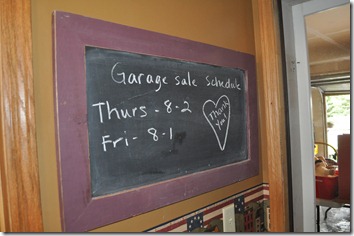 Garage sale Schedule
Thurs - 8-2
Fri- 8-1
Thank
You!